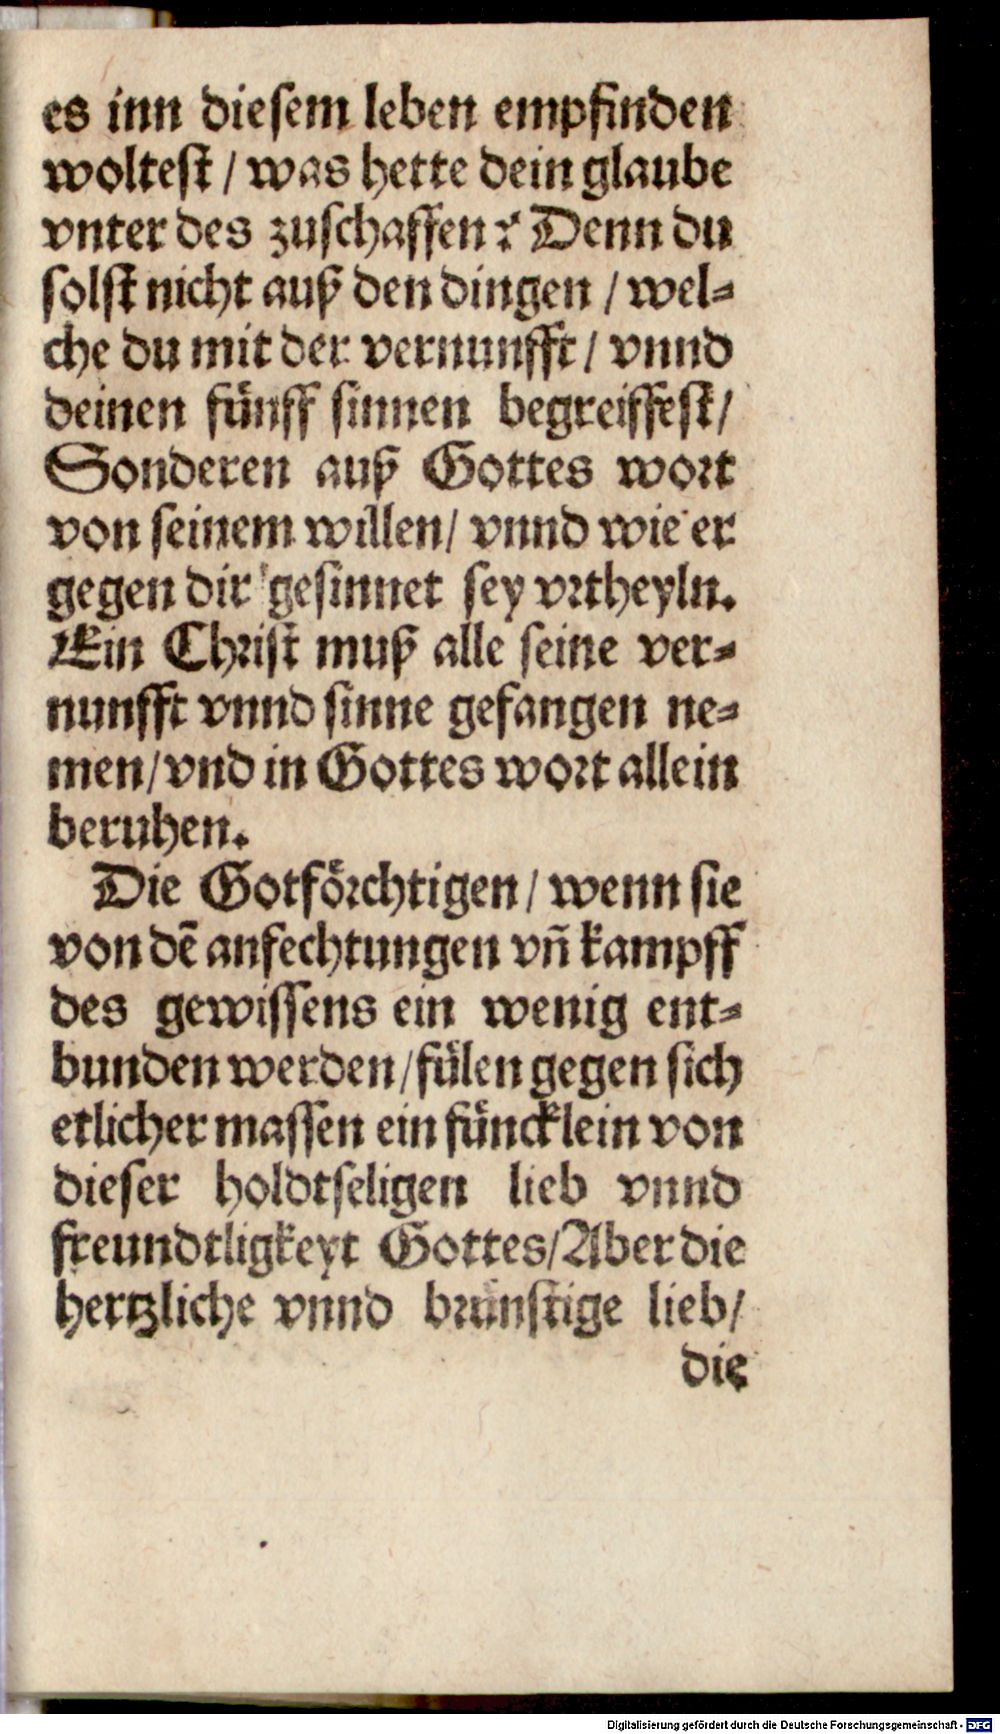 es inn diesem leben empfinden
woltest / was hette dein glaube
vnter des zuschaffen? Denn du
solst nicht auß den dingen / wel⸗
che du mit der vernunfft / vnnd
deinen fünff sinnen begreiffest /
Sonderen auß Gottes wort
von seinem willen / vnnd wie er
gegen dir gesinnet sey vrtheyln.
Ein Christ muß alle seine ver⸗
nunfft vnnd sinne gefangen ne⸗
men / vnd in Gottes wort allein
beruhen.
Die Gotförchtigen / wenn sie
von dẽ anfechtungen vñ kampff
des gewissens ein wenig ent⸗
bunden werden / fülen gegen sich
etlicher massen ein füncklein von
dieser holdtseligen lieb vnnd
freundtligkeyt Gottes / Aber die
hertzliche vnnd brünstige lieb /
die
Digitalisierung gefördert durch die Deutsche Forschungsgemeinschaft - DFG